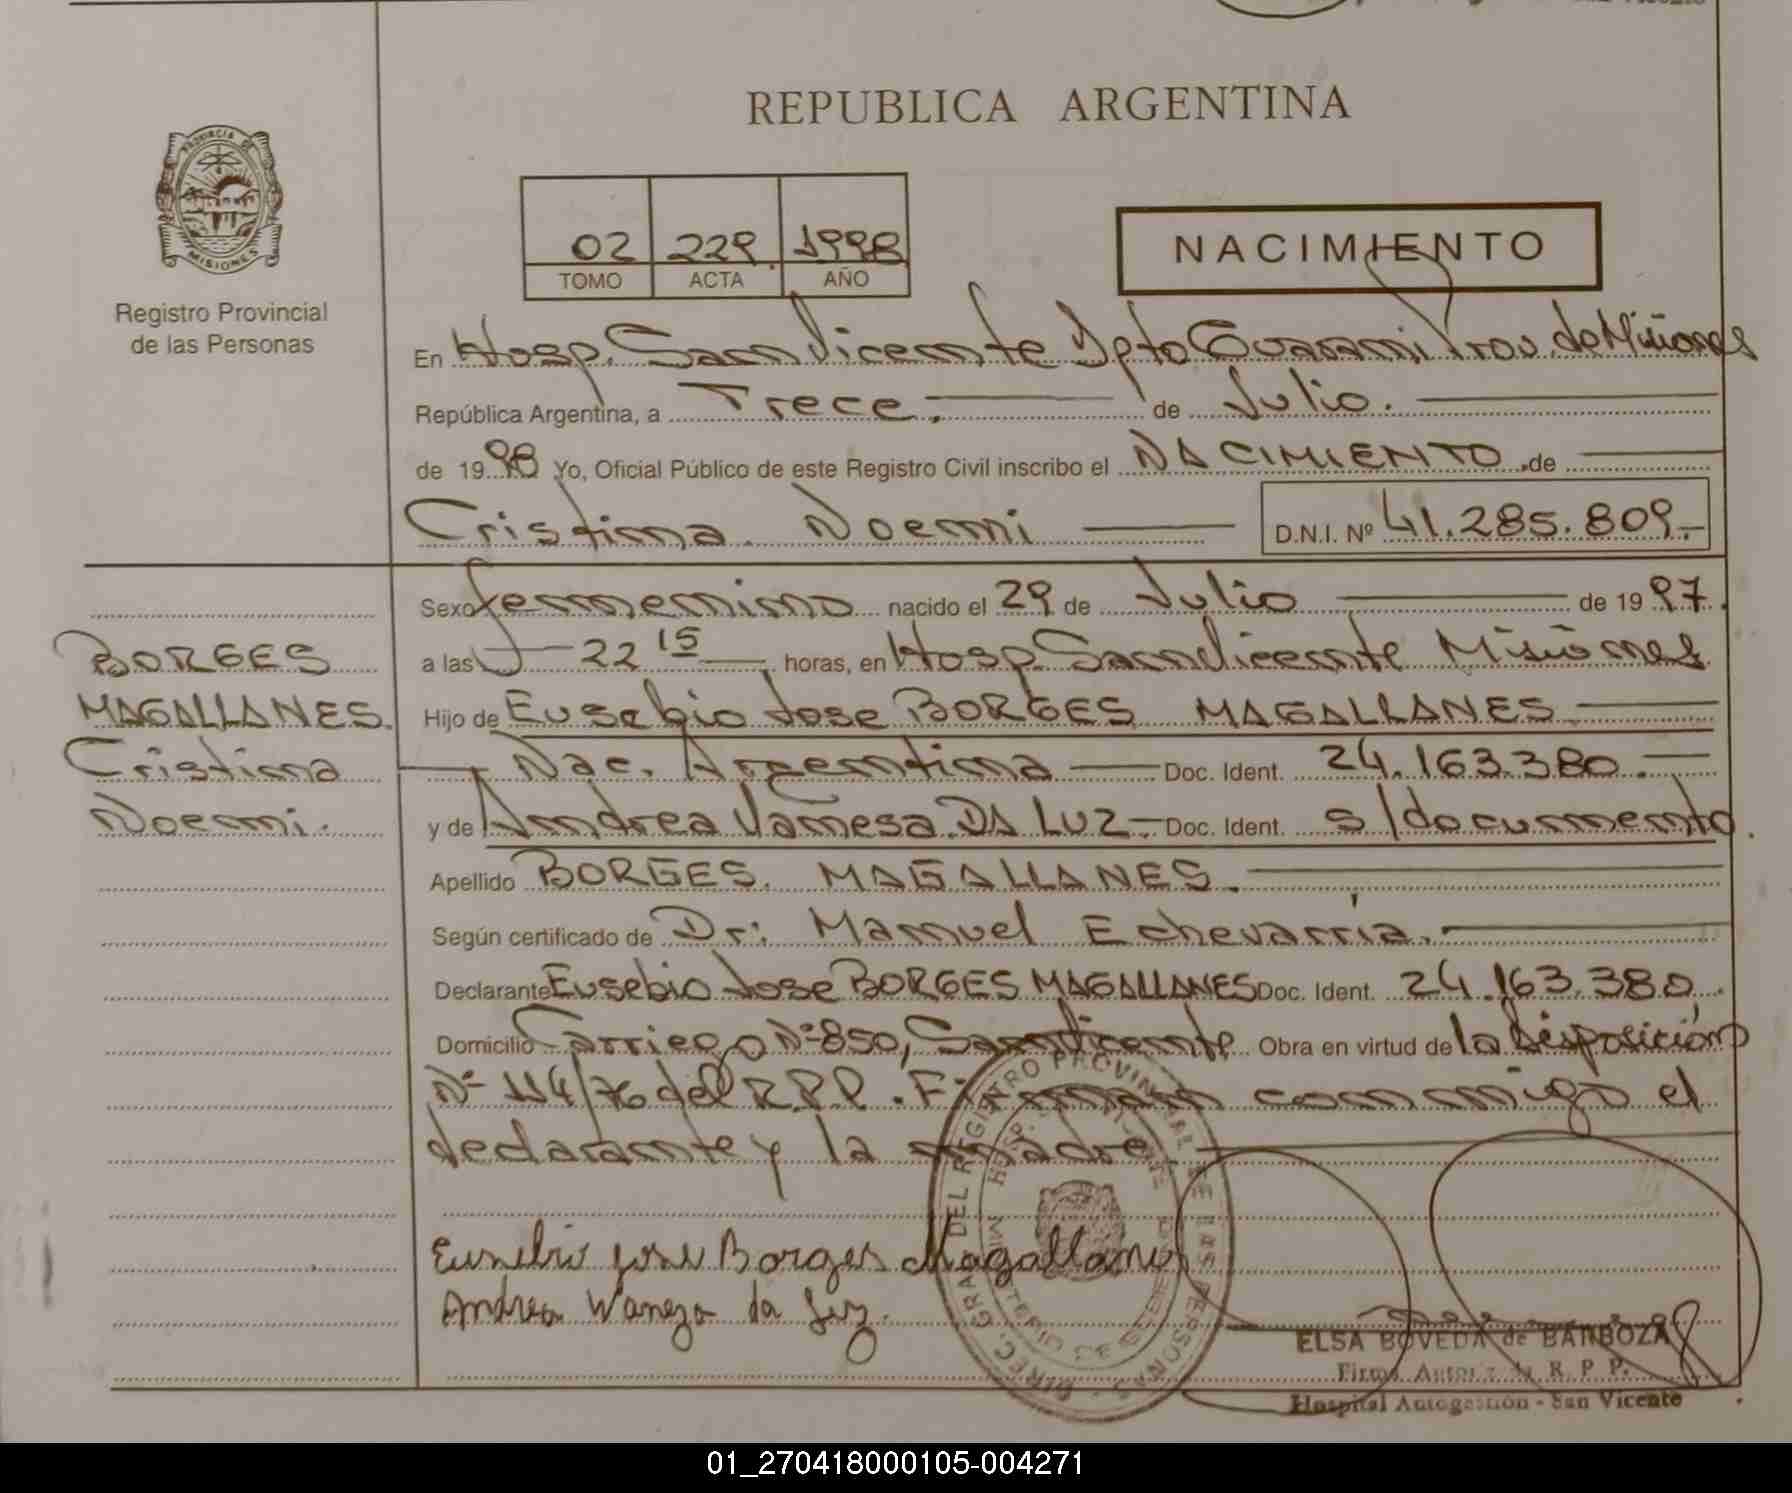 REPUBLICA ARGENTINA
PROVINCIA DE
MISIONES
Registro Provincial
de las Personas
02 229 1998
TOMO ACTA AÑO
NACIMIENTO
En Hosp. San Vicente Dpto Guarani Prov. de Misiones
República Argentina, a Trece. de Julio.
de 1998 Yo, Oficial Público de este Registro Civil inscribo el NACIMIENTO de
Cristina Noemi D.N.I. Nº 41.285.809.-
BORGES
MAGALLANES.
Cristina
Noemi.
Sexo femenino nacido el 29 de Julio de 1997.
a las 22 15 horas, en Hosp. San Vicente Misiones
Hijo de Eusebio Jose BORGES MAGALLANES
Nac. Argentina Doc. Ident. 24.163.380.
y de Andrea Vanesa DA LUZ.- Doc. Ident. s/documento.
Apellido BORGES. MAGALLANES.
Según certificado de Dr: Manuel Echevarría.
Declarante Eusebio Jose BORGES MAGALLANES Doc. Ident. 24.163.380.
Domicilio Carriego Nº 850, San Vicente Obra en virtud de la Disposición
Nº 114/76 del R.P.P. Firman conmigo el
declarante y la madre.
Eusebio Jose Borges Magallanes
Andrea Waneza da Luz.
DIREC. GRAL DEL REGISTRO PROVINCIAL DE LAS PERSONAS
ELSA BOVEDA de BARBOZA
Firma Autoriz. R. P. P.
Hospital Autogestión - San Vicente
01_270418000105-004271